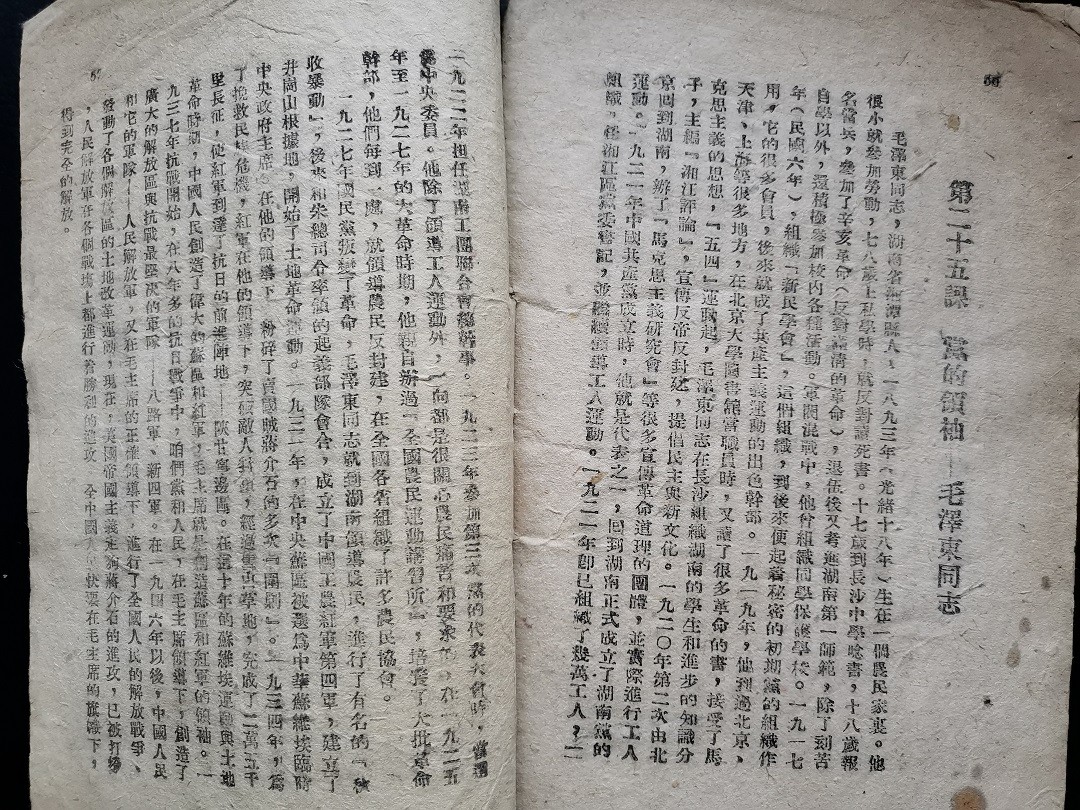 66
第二十五課 黨的領袖——毛澤東同志
毛澤東同志,湖南省湘潭縣人,一八九三年(光緒十八年)生在一個農民家裏。他
很小就參加勞動,七八歲上私學時,就反對讀死書。十七歲到長沙中學唸書,十八歲報
名當兵,參加了辛亥革命(反對滿清的革命),退伍後又考進湖南第一師範,除了刻苦
自學以外,還積極參加校內各種活動。軍閥混戰中,他曾組織同學保護學校。一九一七
年(民國六年),組織『新民學會』,這個組織,到後來便起着秘密的初期黨的組織作
用,它的很多會員,後來就成了共產主義運動的出色幹部。一九一九年,他到過北京、
天津、上海等很多地方,在北京大學圖書館當職員時,又讀了很多革命的書,接受了馬
克思主義的思想,『五四』運動起,毛澤東同志在長沙組織湖南的學生和進步的知識分
子,主編『湘江評論』,宣傳反帝反封建,提倡民主與新文化。一九二〇年第二次由北
京回到湖南,辦了『馬克思主義研究會』等很多宣傳革命道理的團體,並實際進行工人
運動。一九二一年中國共產黨成立時,他就是代表之一,回到湖南正式成立了湖南黨的
組織,任湘江區黨委書記,並繼續領導工人運動。一九二一年卽已組織了幾萬工人,一
九二二年担任湖南工團聯合會總幹事。一九二三年參加第三次黨的代表大會時,當選
爲中央委員。他除了領導工人運動外,一向都是很關心農民痛苦和要求的,在一九二五
年至一九二七年的大革命時期,他親自辦過『全國農民運動講習所』,培養了大批革命
幹部,他們每到一處,就領導農民反封建,在全國各省組織了許多農民協會。
一九二七年國民黨叛變了革命,毛澤東同志就到湖南領導農民,進行了有名的『秋
收暴動』,後來和朱總司令率領的起義部隊會合,成立了中國工農紅軍第四軍,建立了
井崗山根據地,開始了土地革命運動。一九三一年,在中央蘇區被選爲中華蘇維埃臨時
中央政府主席。在他的領導下,粉碎了賣國賊蔣介石的多次『圍剿』。一九三四年,爲
了挽救民族危機,紅軍在他的領導下,突破敵人封鎖,經過雪山草地,完成了二萬五千
里長征,使紅軍到達了抗日的前進陣地——陝甘寧邊區。在這十年的蘇維埃運動與土地
革命時期,中國人民創造了偉大的蘇區和紅軍,毛主席就是創造蘇區和紅軍的領袖。一
九三七年抗戰開始,在八年多的抗日戰爭中,咱們黨和人民,在毛主席領導下,創造了
廣大的解放區與抗戰最堅決的軍隊——八路軍、新四軍。在一九四六年以後,中國人民
和它的軍隊——人民解放軍,又在毛主席的正確領導下,進行了全國人民的解放戰爭、
發動了各個解放區的土地改革運動,現在,美國帝國主義走狗蔣介石的進攻,已被打垮
,人民解放軍在各個戰場上都進行着勝利的進攻 全中國 快要在毛主席的旗幟下,
得到完全的解放。
67